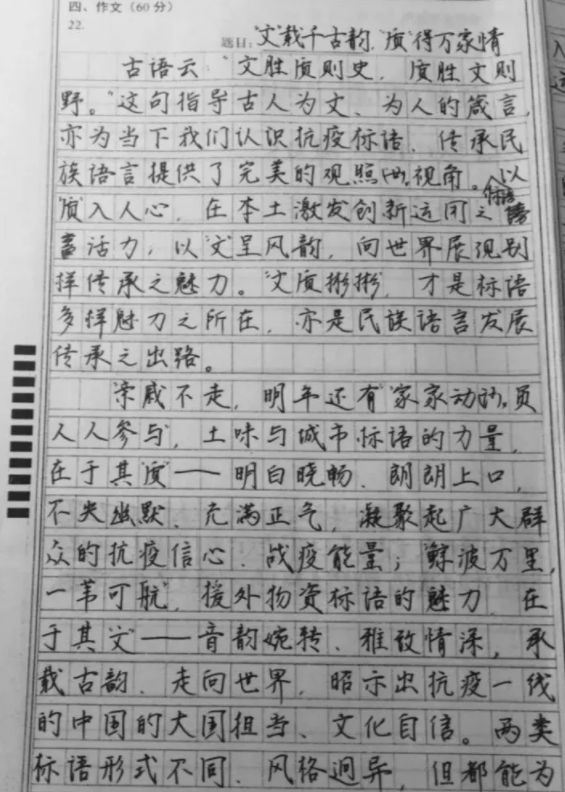 四、作文(60分)
22.
题目:“文”载千古韵,“质”得万家情
古语云:“文胜质则史,质胜文则
野。”这句指导古人为文、为人的箴言,
亦为当下我们认识抗疫标语、传承民
族语言提供了完美的观照视角。以
“质”入人心,在本土激发创新运用之标语
活力,以“文”呈风韵,向世界展现别
样传承之魅力。“文质彬彬”,才是标语
多样魅力之所在,亦是民族语言发展
传承之出路。
“亲戚不走,明年还有”“家家动员,
人人参与”,土味与城市标语的力量,
在于其“质”——明白晓畅、朗朗上口,
不失幽默、充满正气,凝聚起广大群
众的抗疫信心、战疫能量;“鲸波万里,
一苇可航”,援外物资标语的魅力,在
于其“文”——音韵婉转、雅致情深,承
载古韵、走向世界,昭示出抗疫一线
的中国的大国担当、文化自信。两类
标语形式不同、风格迥异,但都能为